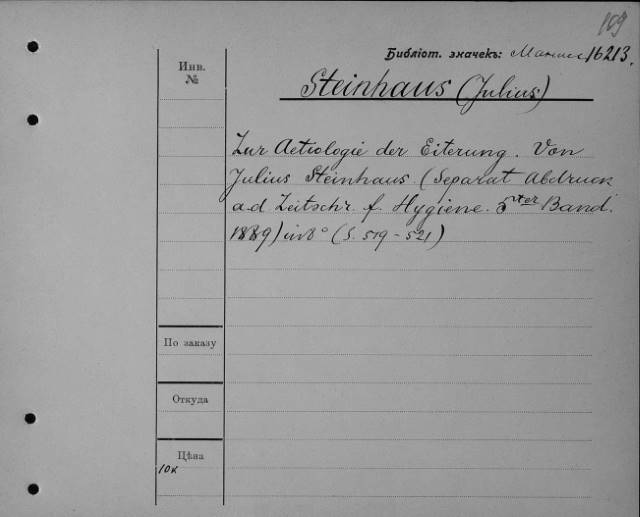 109
Библіот. значекъ: 16213.
Инв.
№
Steinhaus (Julius)
Zur Aetiologie der Eiterung. Von
Julius Steinhaus. (Separat Abdruck
a.d Zeitschr. f. Hygiene. 5ter Band.
1889) in 8° (S. 519-521)
По заказу
Откуда
Цѣна
10к